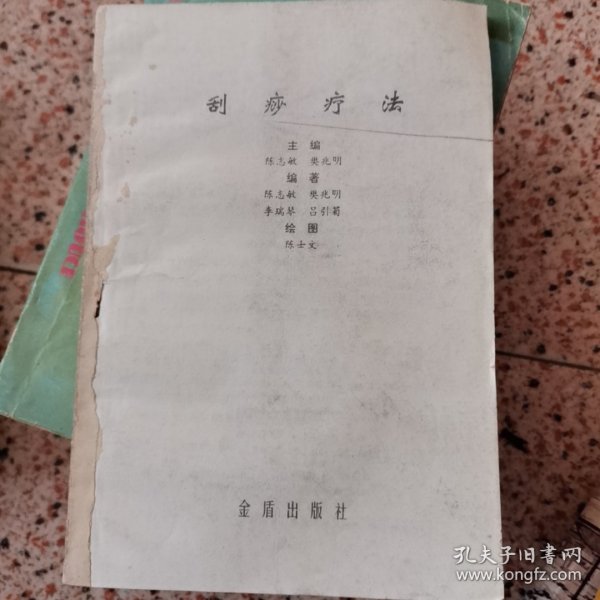 刮痧疗法
主编
陈志敏 樊兆明
编著
陈志敏 樊兆明
李瑞琴 吕引菊
绘图
陈士文
金盾出版社
孔夫子旧书网
www.kongfz.com